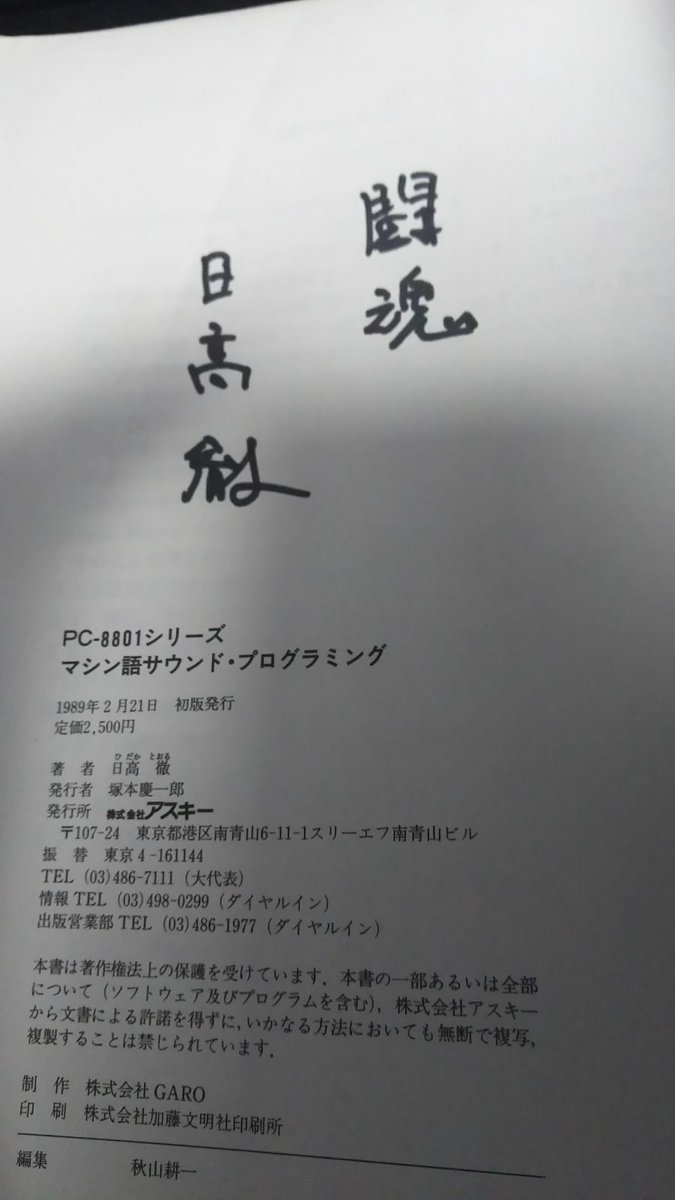 闘魂
日高徹
PC-8801シリーズ
マシン語サウンド・プログラミング
1989年2月21日 初版発行
定価2,500円
ひだか とおる
著 者 日高 徹
発行者 塚本慶一郎
発行所 株式会社アスキー
〒107-24 東京都港区南青山6-11-1スリーエフ南青山ビル
振 替 東京4-161144
TEL (03)486-7111 (大代表)
情報TEL (03)498-0299 (ダイヤルイン)
出版営業部TEL (03)486-1977 (ダイヤルイン)
本書は著作権法上の保護を受けています．本書の一部あるいは全部
について（ソフトウェア及びプログラムを含む），株式会社アスキー
から文書による許諾を得ずに，いかなる方法においても無断で複写，
複製することは禁じられています．
制 作 株式会社GARO
印 刷 株式会社加藤文明社印刷所
編集 秋山耕一